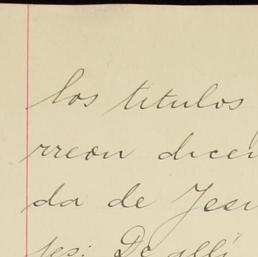 los titulos
rreon dicen
da de Jesu
tes: De allí